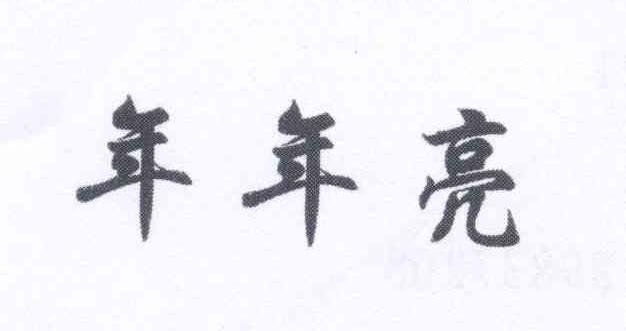 年年亮